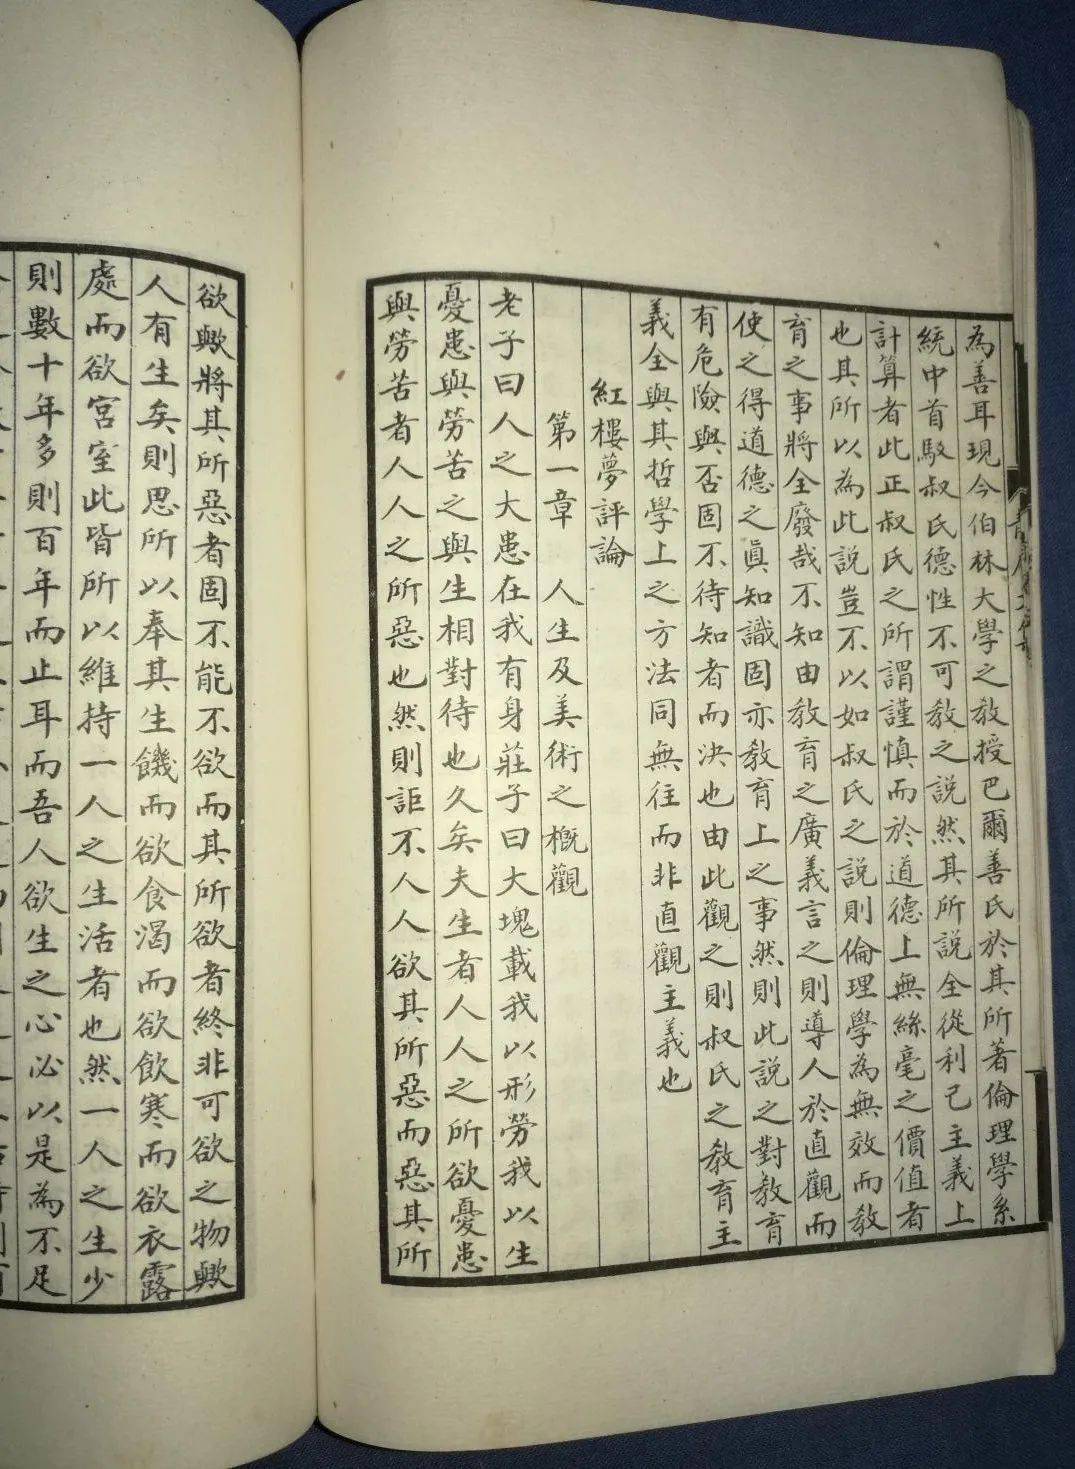 為善耳現今伯林大學之教授巴爾善氏於其所著倫理學系
統中首駁叔氏德性不可教之説然其所説全從利己主義上
計算者此正叔氏之所謂謹慎而於道德上無絲毫之價值者
也其所以為此説豈不以如叔氏之説則倫理學為無效而教
育之事將全廢哉不知由教育之廣義言之則導人於直觀而
使之得道德之真知識固亦教育上之事然則此説之對教育
有危險與否固不待知者而决也由此觀之則叔氏之教育主
義全與其哲學上之方法同無往而非直觀主義也
紅樓夢評論
第一章 人生及美術之概觀
老子曰人之大患在我有身莊子曰大塊載我以形勞我以生
憂患與勞苦之與生相對待也久矣夫生者人人之所欲憂患
與勞苦者人人之所惡也然則詎不人人欲其所惡而惡其所
欲歟將其所惡者固不能不欲而其所欲者終非可欲之物歟
人有生矣則思所以奉其生饑而欲食渴而欲飲寒而欲衣露
處而欲宫室此皆所以維持一人之生活者也然一人之生少
則數十年多則百年而止耳而吾人欲生之心必以是為不足